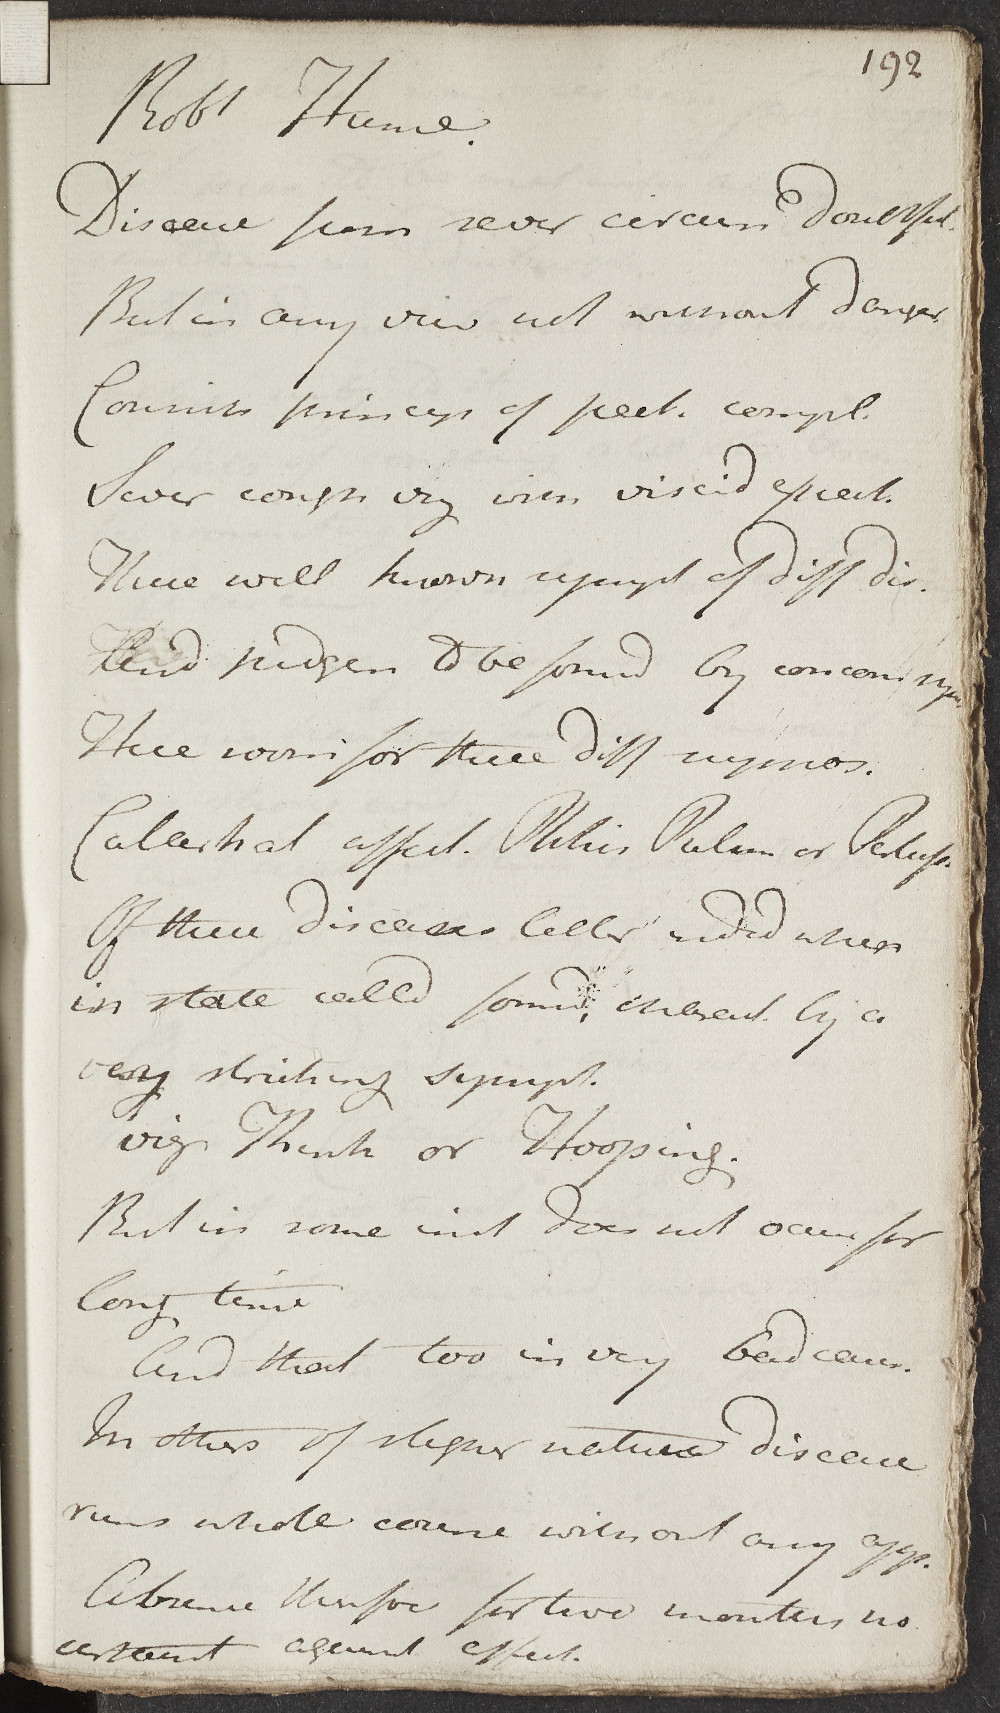 192
Robt Hume.
Disease from sever circum doubtful.
But in any view not without danger.
Consists princip of pect. compl.
Sever cough very viscid expect.
These well known sympt of diff dis.
And judgm to be formd by concom sym
These worn for three diff
Catarrhal affect. Phthis Pulm or Pertuss.
Of these diseases latter indeed when
in state calld formd, by a
very striking sympt.
viz Kink or Hooping.
But in some inst does not occur for
long time
And that too in very bad cases.
In others of sligher nature disease
runs whole course without any app.
Absence therefor for two months no
against affect.